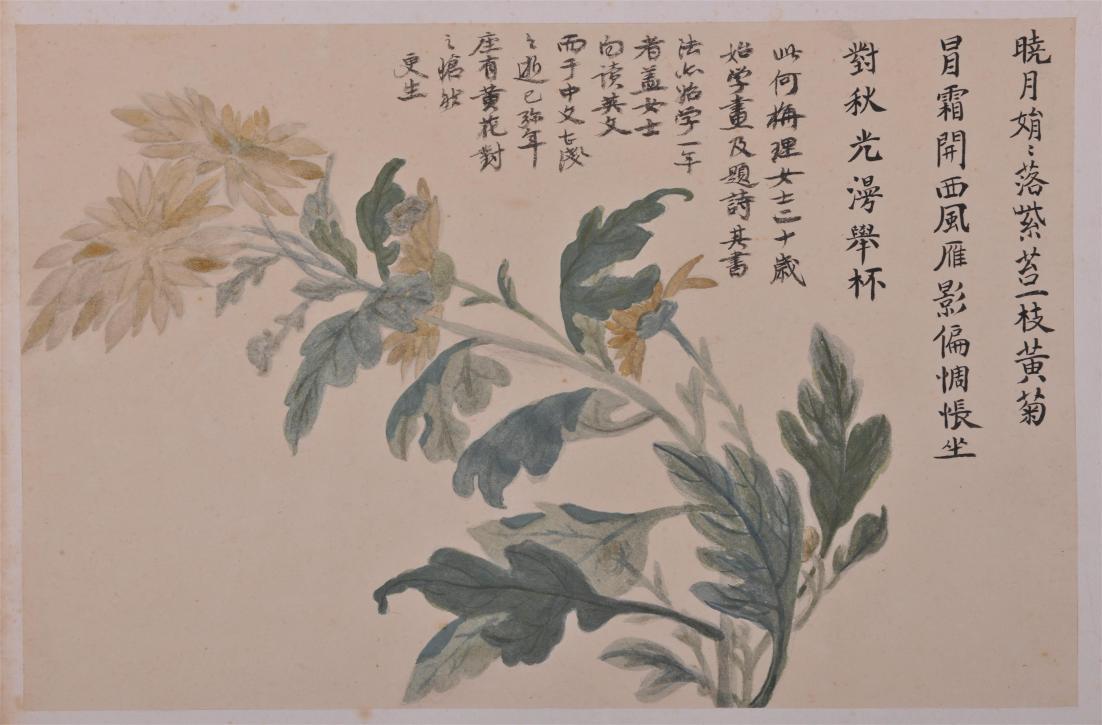 曉月娟〻落紫苔一枝黃菊
冒霜開西風雁影偏惆悵坐
對秋光漫舉杯
此何梅理女士二十歲
始学畫及題詩其書
法亦始学一年
者蓋女士
向读英文
而于中文甚淺
之逝已弥年
座有黄花對
之愴然
更生